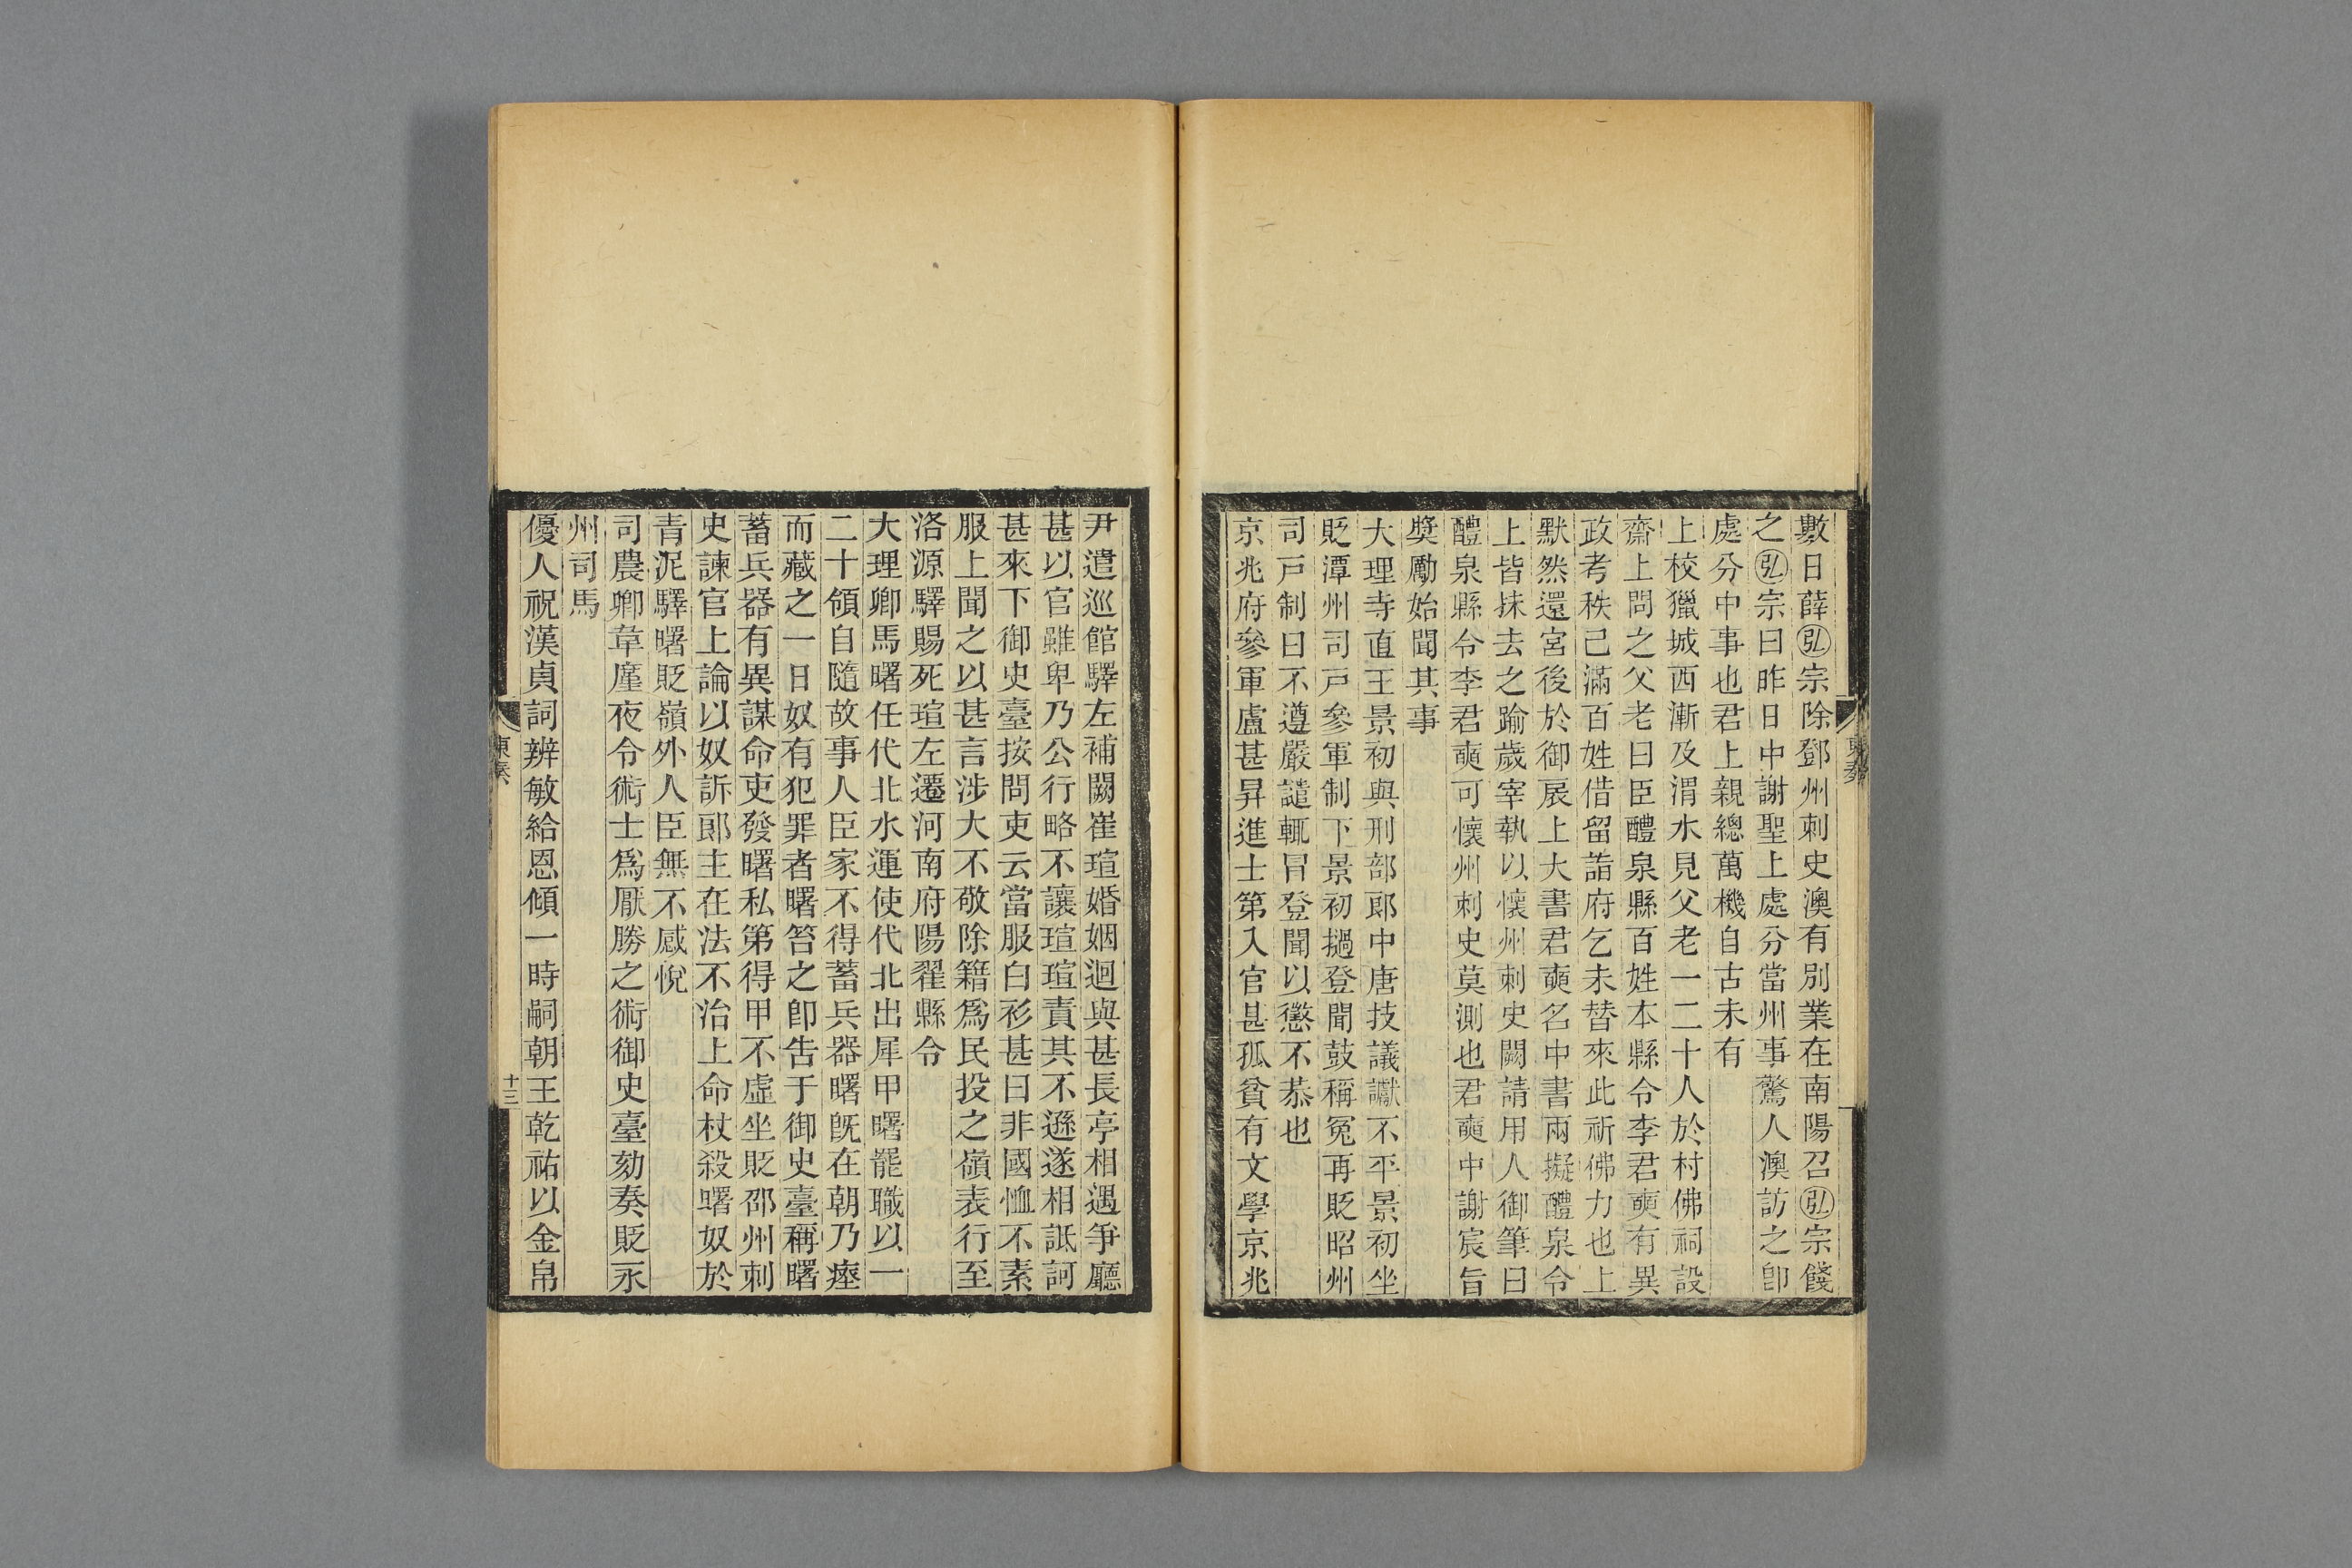 數日薛弘宗除鄧州刺史澳有別業在南陽召弘宗餞
之弘宗曰昨日中謝聖上處分當州事驚人澳訪之卽
處分中事也君上親總萬機自古未有
上校獵城西漸及渭水見父老一二十人於村佛祠設
齋上問之父老曰臣醴泉縣百姓本縣令李君奭有異
政考秩已滿百姓借留詣府乞未替來此祈佛力也上
默然還宮後於御扆上大書君奭名中書兩擬醴泉令
上皆抹去之踰歲宰執以懷州刺史闕請用人御筆曰
醴泉縣令李君奭可懷州刺史莫測也君奭中謝宸旨
奬勵始聞其事
大理寺直王景初與刑部郎中唐技議讞不平景初坐
貶潭州司戸參軍制下景初撾登聞鼓稱冤再貶昭州
司戸制曰不遵嚴譴輒冒登聞以懲不恭也
京兆府參軍盧甚昇進士第入官甚孤貧有文學京兆
尹遣巡館驛左補闕崔瑄婚姻迴與甚長亭相遇爭廳
甚以官雖卑乃公行略不讓瑄瑄責其不遜遂相詆訶
甚來下御史臺按問吏云當服白衫甚曰非國恤不素
服上聞之以甚言涉大不敬除籍爲民投之嶺表行至
洛源驛賜死瑄左遷河南府陽翟縣令
大理卿馬曙任代北水運使代北出犀甲曙罷職以一
二十領自隨故事人臣家不得蓄兵器曙旣在朝乃瘞
而藏之一日奴有犯罪者曙笞之卽吿于御史臺稱曙
蓄兵器有異謀命吏發曙私第得甲不虛坐貶邵州刺
史諫官上論以奴訴郎主在法不治上命杖殺曙奴於
青泥驛曙貶嶺外人臣無不感悅
司農卿韋廑夜令術士爲厭勝之術御史臺劾奏貶永
州司馬
優人祝漢貞詞辨敏給恩傾一時嗣朝王乾祐以金帛
東奏
十三